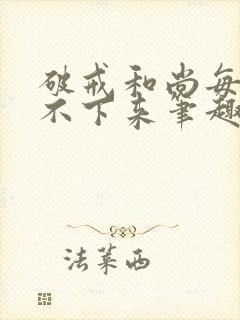 破戒和尚每
不下来笔趣
法莱西